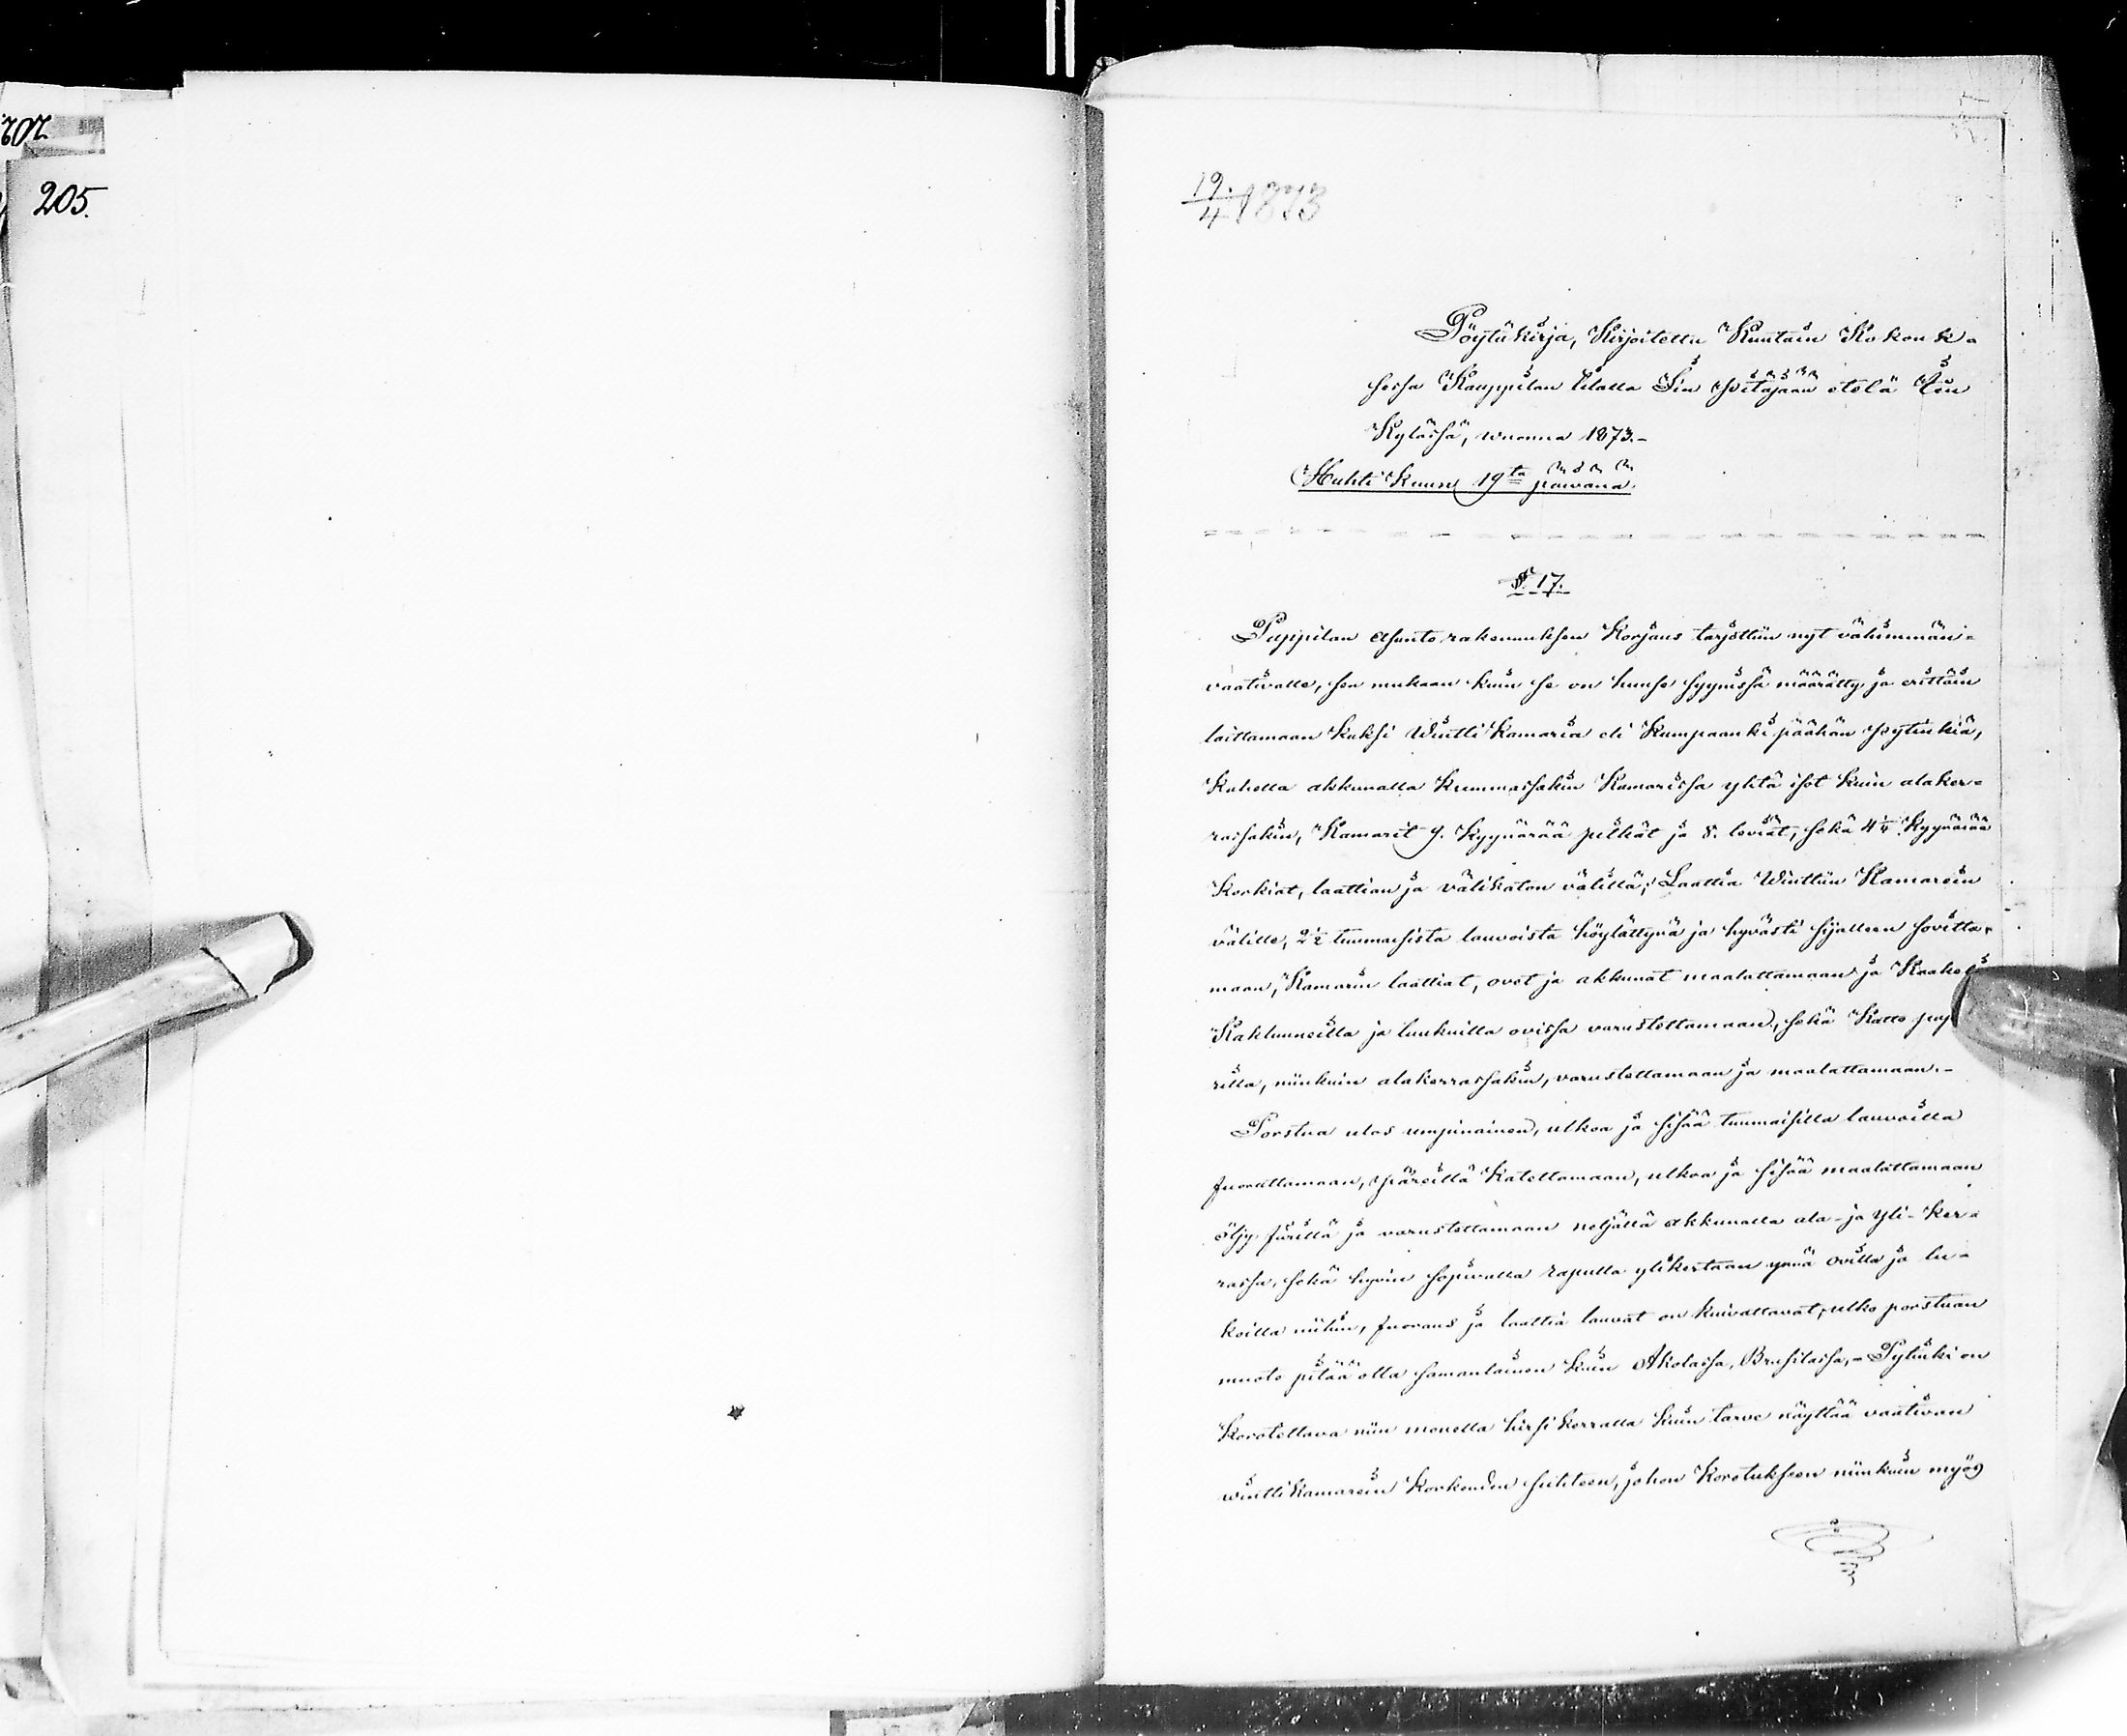 202.
205.
19./4 1873
Pöytäkirja, Kirjoitettu Kuntain Kokouk-
sessa Kauppilan tilalla Iin pitäjään etelä Iin
Kylässä, wuonna 1873.-
Huhti Kuun 19ta päivänä.
§. 17.
Pappilan asunto rakennuksen Korjaus tarjottiin nyt vähimmän-
vaativalle, sen mukaan kuin se on huuse syynissä määrätty ja erittäin
laittamaan Kaksi Wintti Kamaria eli Kumpaanki päähän pytinkiä,
Kahella akkunalla Kummassakin Kamarissa yhtä isot kuin alaker-
rassakin, Kamarit 9. Kyynärää pitkät ja 8. leviät, sekä 4 1/4 Kyynärää
Korkiat, laattian ja välikaton välillä; Laattia Winttiin Kamarein
välille, 2 1/2 tuumaisista lauvoista höylättynä ja hyvästi sijalleen sovitta-
maan, Kamarin laattiat, ovet ja akkunat maalattamaan ja Kaakeli
Kakluuneilla ja luukuilla ovissa varustettamaan, sekä Katto pap
rilla, niinkuin alakerrassakin, varustettamaan ja maalattamaan.-
Porstua ulos umpinainen, ulkoa ja sisää tuumaisilla lauvoilla
fuorattamaan, päreillä Katettamaan, ulkoa ja sisää maalattamaan
öljy färillä ja varustettamaan neljällä akkunalla ala- ja yli-Ker-
rassa, sekä hyvin sopivalla rapulla ylikertaan ynä ovilla ja lu-
koilla niihin, fuoraus ja laattia lauvat on kuivattavat, ulko porstuan
muoto pitää olla samanlainen kuin Akolassa, Brusilassa,- Pytinki on
Korotettava niin monella hirsi kerralla kuin tarve näyttää vaativan
winttikamarein Korkeuden suhteen, johon Korotukseen niinkuin myös